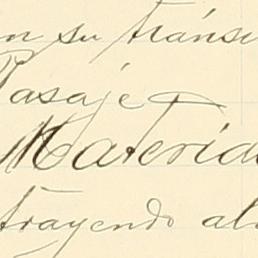 en su tránsi
Pasaje
Materia
trayendo al